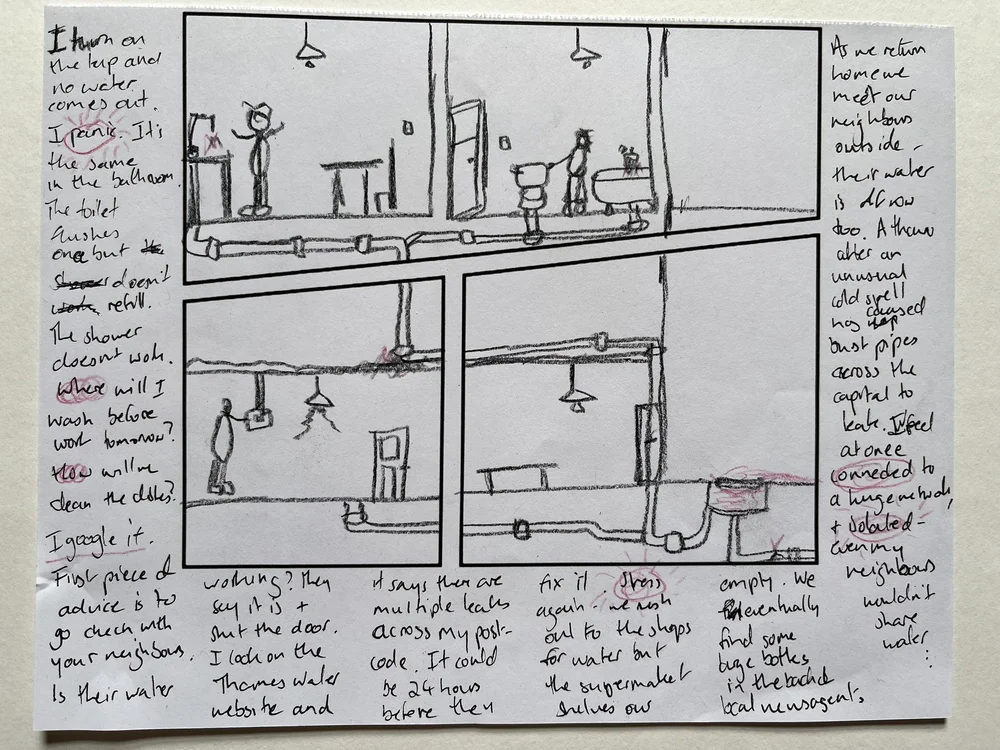 I turn on
the tap and
no water
comes out.
I panic. It's
the same
in the bathroom.
The toilet
flushes
once but the
shower doesn't
work. refill.
The shower
doesn't work.
Where will I
wash before
work tomorrow?
How will we
clean the dishes?
I google it.
First piece of
advice is to
go check with
your neighbours.
Is their water
working? They
say it is +
shut the door.
I look on the
Thames Water
website and
it says there are
multiple leaks
across my post-
code. It could
be 24 hours
before they
fix it! Stress
again. We rush
out to the shops
for water but
the supermarket
shelves our
empty. We
eventually
find some
huge bottles
in the back of
local newsagents.
As we return
home we
meet our
neighbours
outside -
their water
is off now
too. A thaw
after an
unusual
cold spell
has caused
bust pipes
across the
capital to
leak. I feel
at once
connected to
a huge network,
+ isolated -
even my
neighbours
wouldn't
share
water...